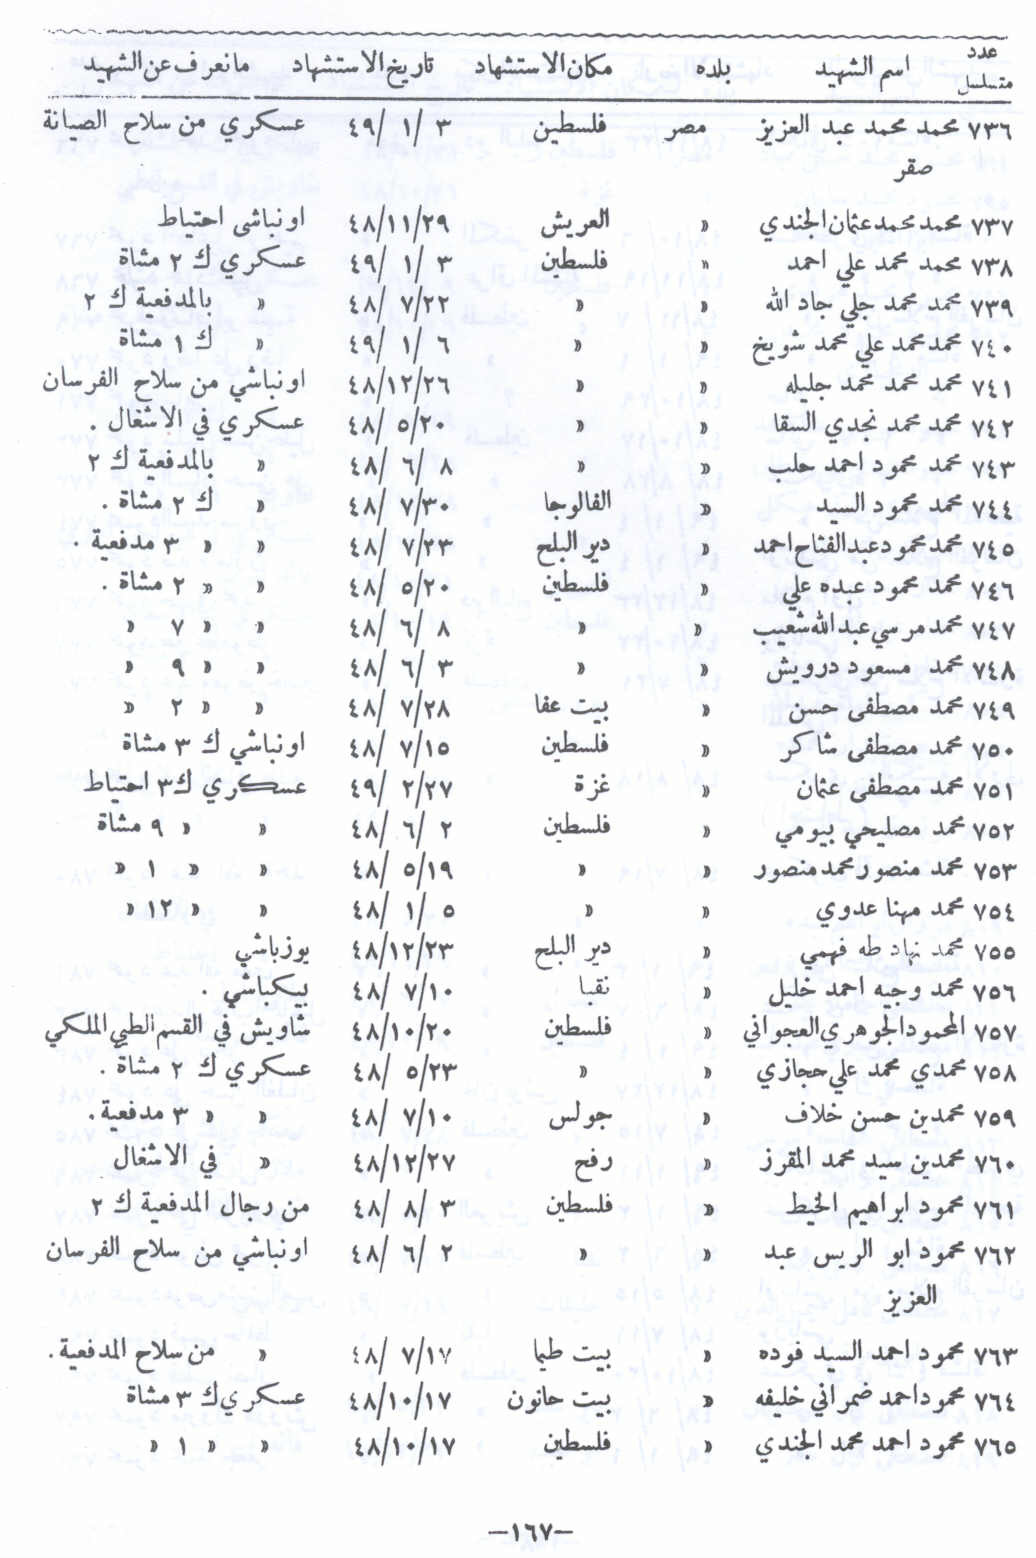 عدد متسلسل اسم الشهيد بلده مكان الاستشهاد تاريخ الاستشهاد مانعرف عن الشهيد
٧٣٦ محمد محمد عبد العزيز مصر فلسطين ٣ /١ /٤٩ عسكري من سلاح الصيانة
صقر
٧٣٧ محمد محمد عثمان الجندي » العريش ٤٨/١١/٢٩ اونباشى احتياط
٧٣٨ محمد محمد علي احمد » فلسطين ٣ /١ /٤٩ عسكري ك ٢ مشاة
٧٣٩ محمد محمد جلي جاد الله » » ٢٢/ ٧ /٤٨ » بالمدفعية ك ٢
٧٤٠ محمد محمد علي محمد شويخ » » ٦ /١ /٤٩ » ك ١ مشاة
٧٤١ محمد محمد محمد جلبله » » ٤٨/١٢/٢٦ اونباشي من سلاح الفرسان
٧٤٢ محمد محمد نجدي السقا » » ٢٠/ ٥ /٤٨ عسكري في الاشغال .
٧٤٣ محمد محمود احمد حلب » » ٨ /٦ /٤٨ » بالمدفعية ك ٢
٧٤٤ محمد محمود السيد » الفالوجا ٣٠/ ٧ /٤٨ » ك ٢ مشاة .
٧٤٥ محمد محمود عبد الفتاح احمد » دير البلح ٢٣/ ٧ /٤٨ » » ٣ مدفعية .
٧٤٦ محمد محمود عبده علي » فلسطين ٢٠/ ٥ /٤٨ » » ٢ مشاة .
٧٤٧ محمد مرسي عبد الله شعيب » » ٨ /٦ /٤٨ » » ٧ »
٧٤٨ محمد مسعود درويش » » ٣ /٦ /٤٨ » » ٩ »
٧٤٩ محمد مصطفى حسن » بيت عفا ٢٨/ ٧ /٤٨ » » ٢ »
٧٥٠ محمد مصطفى شاكر » فلسطين ١٥/ ٧ /٤٨ اونباشي ك ٣ مشاة
٧٥١ محمد مصطفى عثمان » غزة ٢٧/ ٢ /٤٩ عسكري ك ٣ احتياط
٧٥٢ محمد مصليحي بيومي » فلسطين ٢ /٦ /٤٨ » » ٩ مشاة
٧٥٣ محمد منصور محمد منصور » » ١٩/ ٥ /٤٨ » » ١ »
٧٥٤ محمد مهنا عدوي » » ٥ /١ /٤٨ » » ١٢ »
٧٥٥ محمد نهاد طه فهمي » دير البلح ٤٨/١٢/٢٣ يوزباشي
٧٥٦ محمد وجيه احمد خليل » نقبا ١٠/ ٧ /٤٨ بيكباشي .
٧٥٧ المحمود الجوهري العجواني » فلسطين ٤٨/١٠/٢٠ شاويش في القسم الطبي الملكي
٧٥٨ محمدي محمد علي حجازي » » ٢٣/ ٥ /٤٨ عسكري ك ٢ مشاة .
٧٥٩ محمد بن حسن خلاف » جولس ١٠/ ٧ /٤٨ » » ٣ مدفعية .
٧٦٠ محمد بن سيد محمد المقرز » رفح ٤٨/١٢/٢٧ » في الاشغال
٧٦١ محمود ابراهيم الخيط » فلسطين ٣ /٨ /٤٨ من رجال المدفعية ك ٢
٧٦٢ محمود ابو الريس عبد » » ٢ /٦ /٤٨ اونباشي من سلاح الفرسان
العزيز
٧٦٣ محمود احمد السيد فوده » بيت طيما ١٧/ ٧ /٤٨ » من سلاح المدفعية .
٧٦٤ محمود احمد ضمراني خليفه » بيت حانون ٤٨/١٠/١٧ عسكري ك ٣ مشاة
٧٦٥ محمود احمد محمد الجندي » فلسطين ٤٨/١٠/١٧ » » ١ »
—١٦٧—